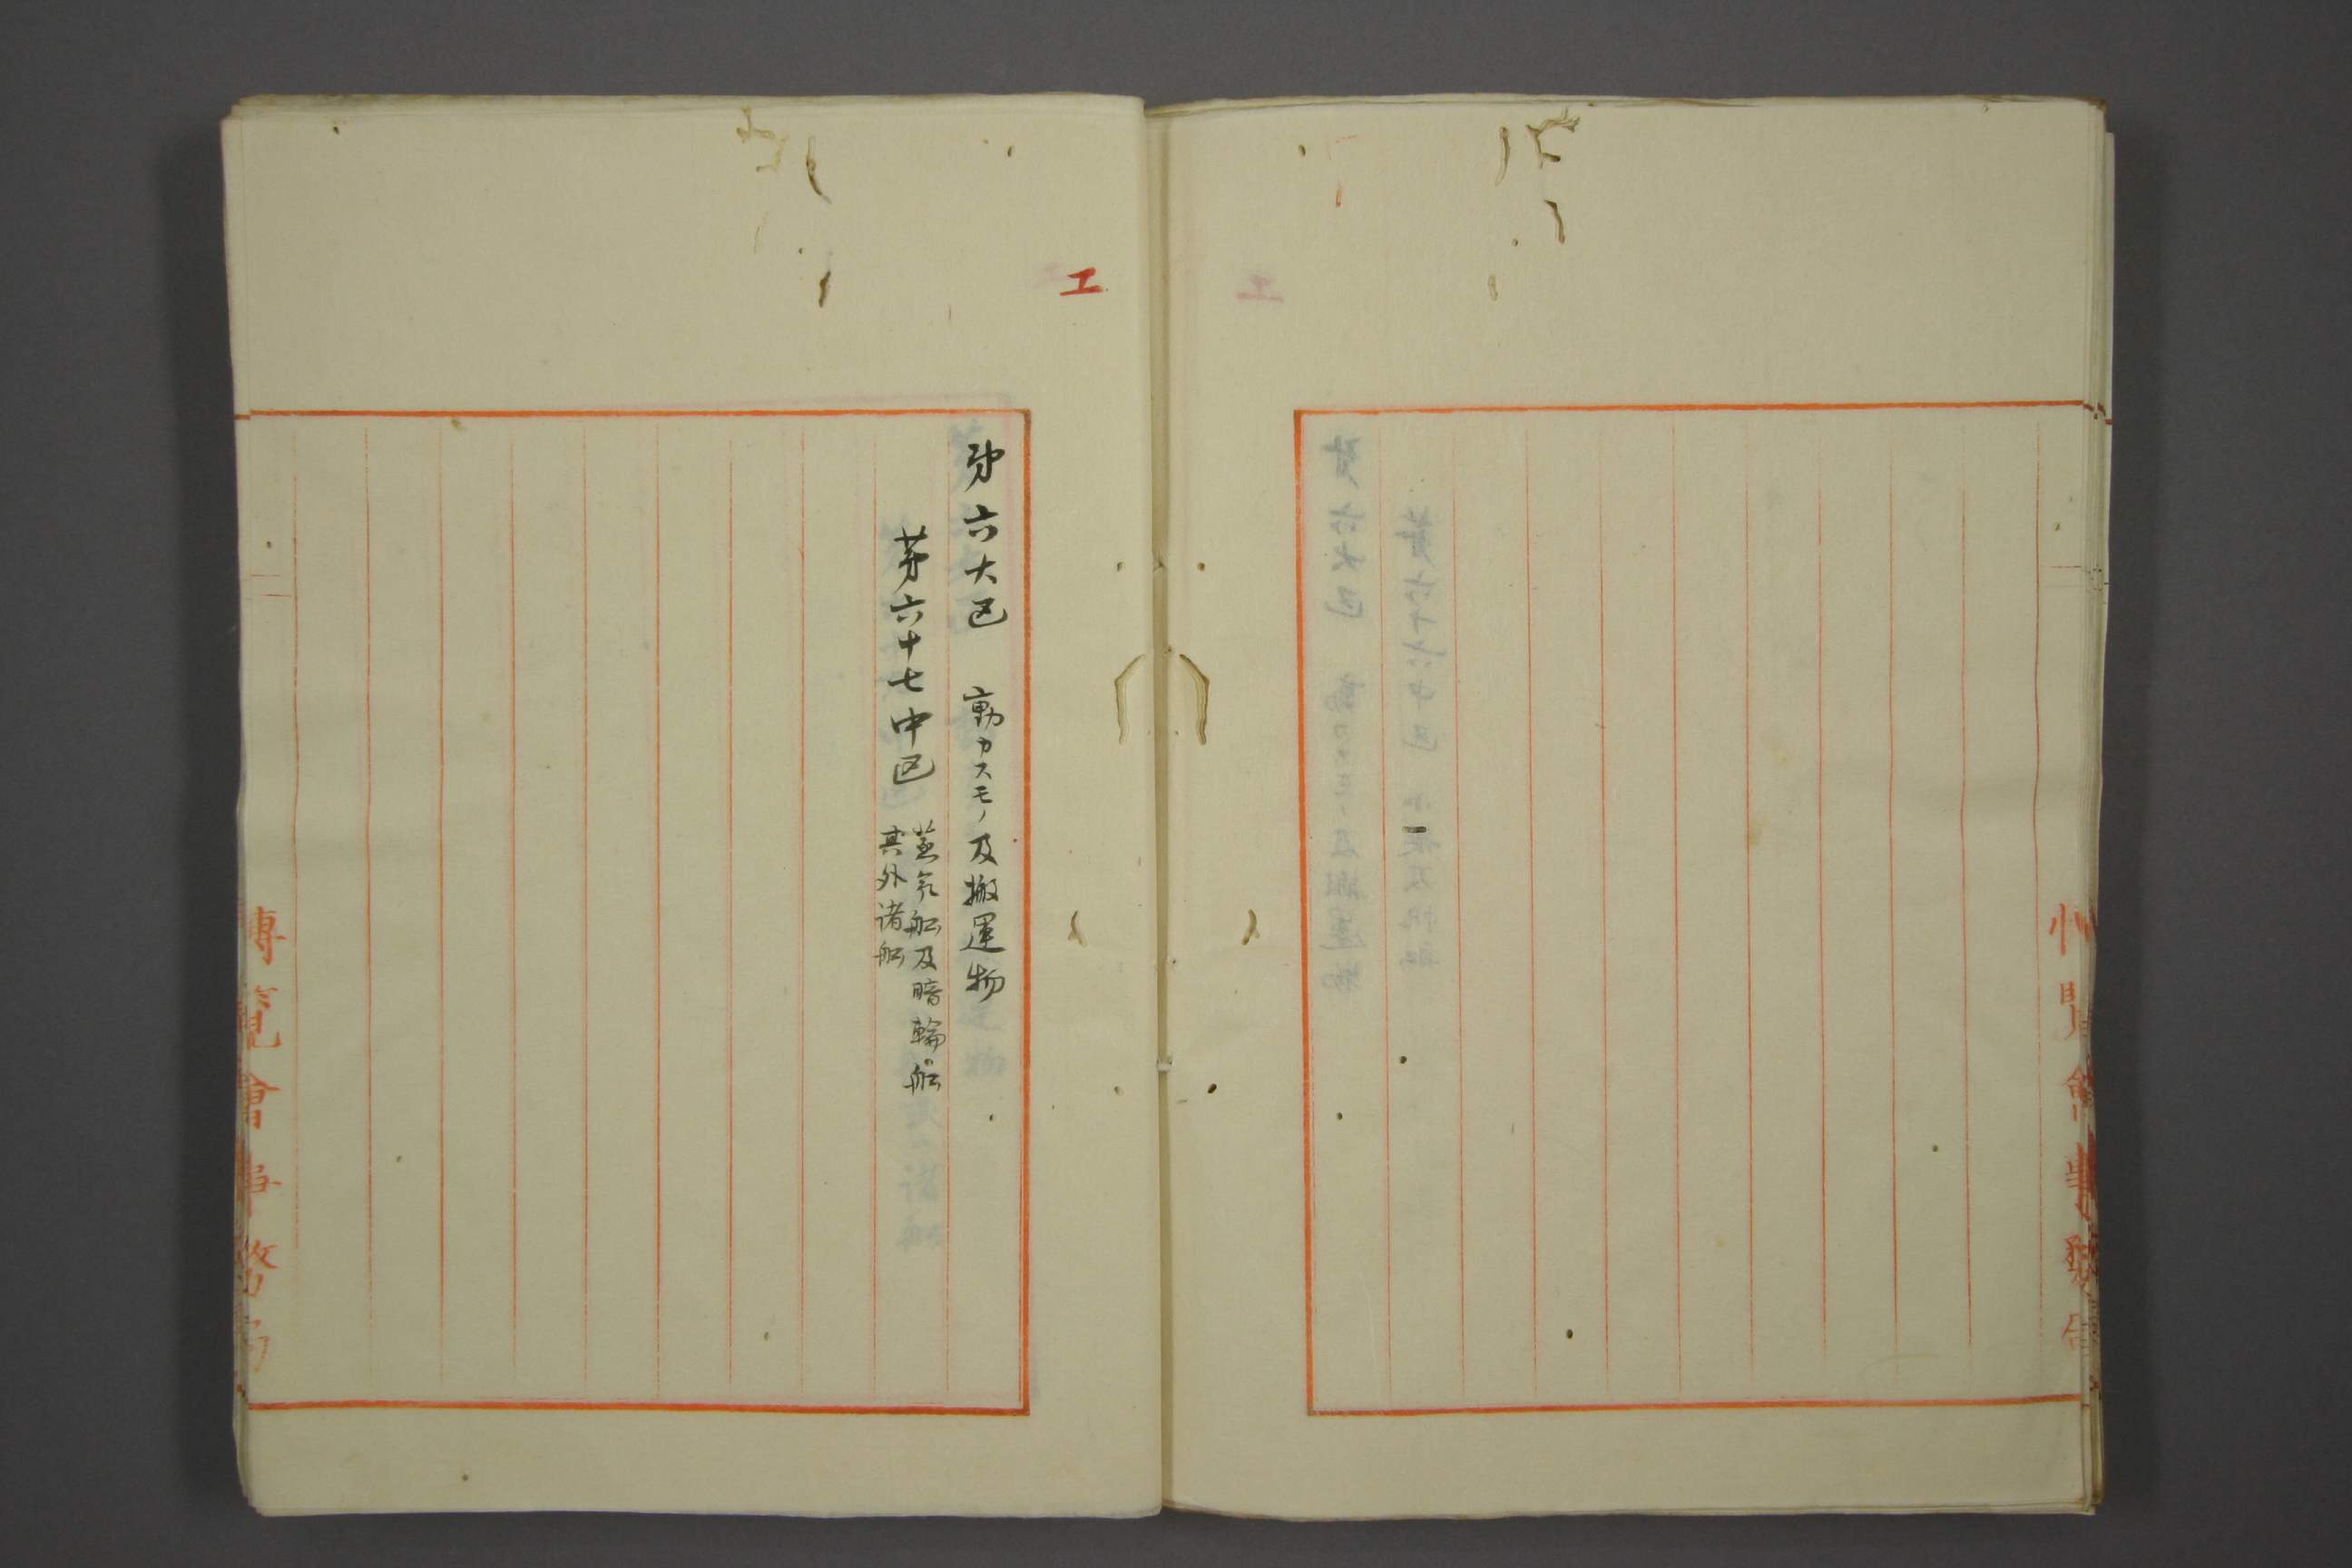 工
第六大区 動カスモノ及搬運物
第六十七中区 蒸気船及暗輪船
其外諸船
博覧會事務局